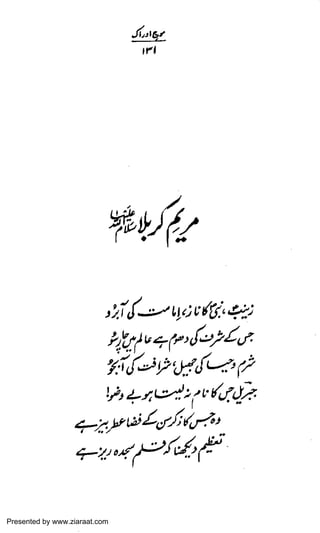 موج ادراک
۱۳۱
مریم کربلا سلام اللہ علیہا
زینبؑ، نبیؐ کا ناز، امامت کی آبرو
جس کے شرف کی دھوم ہے عالم میں چار سو
شرم و حیا کی جھیل، شرافت کی آبجو
جبریل جس کا نام نہ لیتا ہو بے وضو!
وہ جس کا ذکر سن کے فضا عطر بیز ہے
تعظیم دیکھنا کہ قلم سجدہ ریز ہے
Presented by www.ziaraat.com